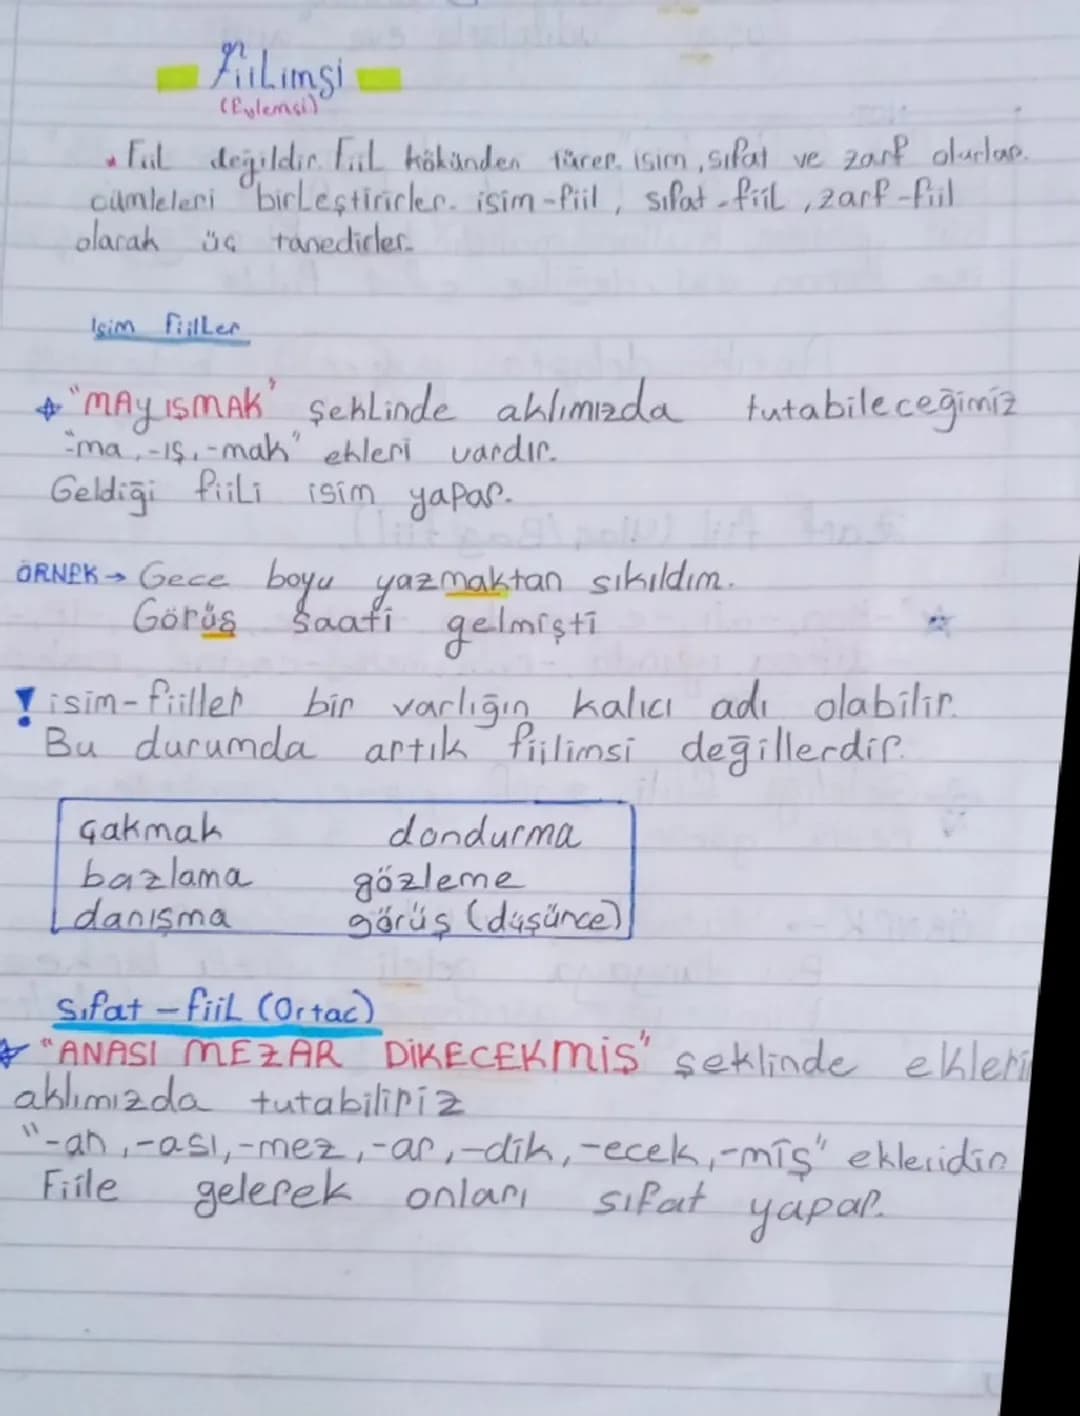 Fiilimsi
(Eylemsi)
Fiil değildir. Fiil kökünden türer. isim, sıfat ve zarf olurlar.
cümleleri birleştirirler. isim-fiil, sıfat-fiil, zarf-fiil
olarak üç tanedirler.
İsim fiiller
"MAY ISMAK" şeklinde aklımızda tutabileceğimiz
"-ma, -ış, -mak" ekleri vardır.
Geldiği fiili isim yapar.
ÖRNEK → Gece boyu yazmaktan sıkıldım.
Görüş saati gelmişti
! isim-fiiller bir varlığın kalıcı adı olabilir.
Bu durumda artık fiilimsi değillerdir.
çakmak dondurma
bazlama gözleme
danışma görüş (düşünce)
Sıfat-fiil (Ortaç)
"ANASI MEZAR DİKECEKMİŞ" şeklinde ekleri
aklımızda tutabiliriz
"-an, -ası, -mez, -ar, -dik, -ecek, -miş" ekleridir
Fiile gelerek onları sıfat yapar.